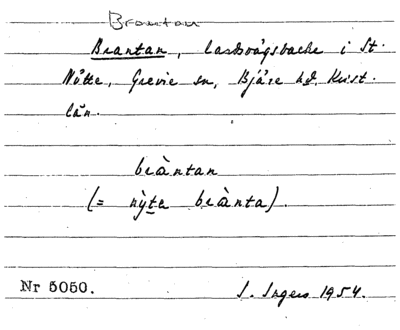 Brantan
Brantan, landsvägsbacke i St.
Nötte, Grevie sn, Bjäre hd, Krist.
län.
bràntan
(= nỳte brànta).
Nr 5050.
I. Ingers 1954.